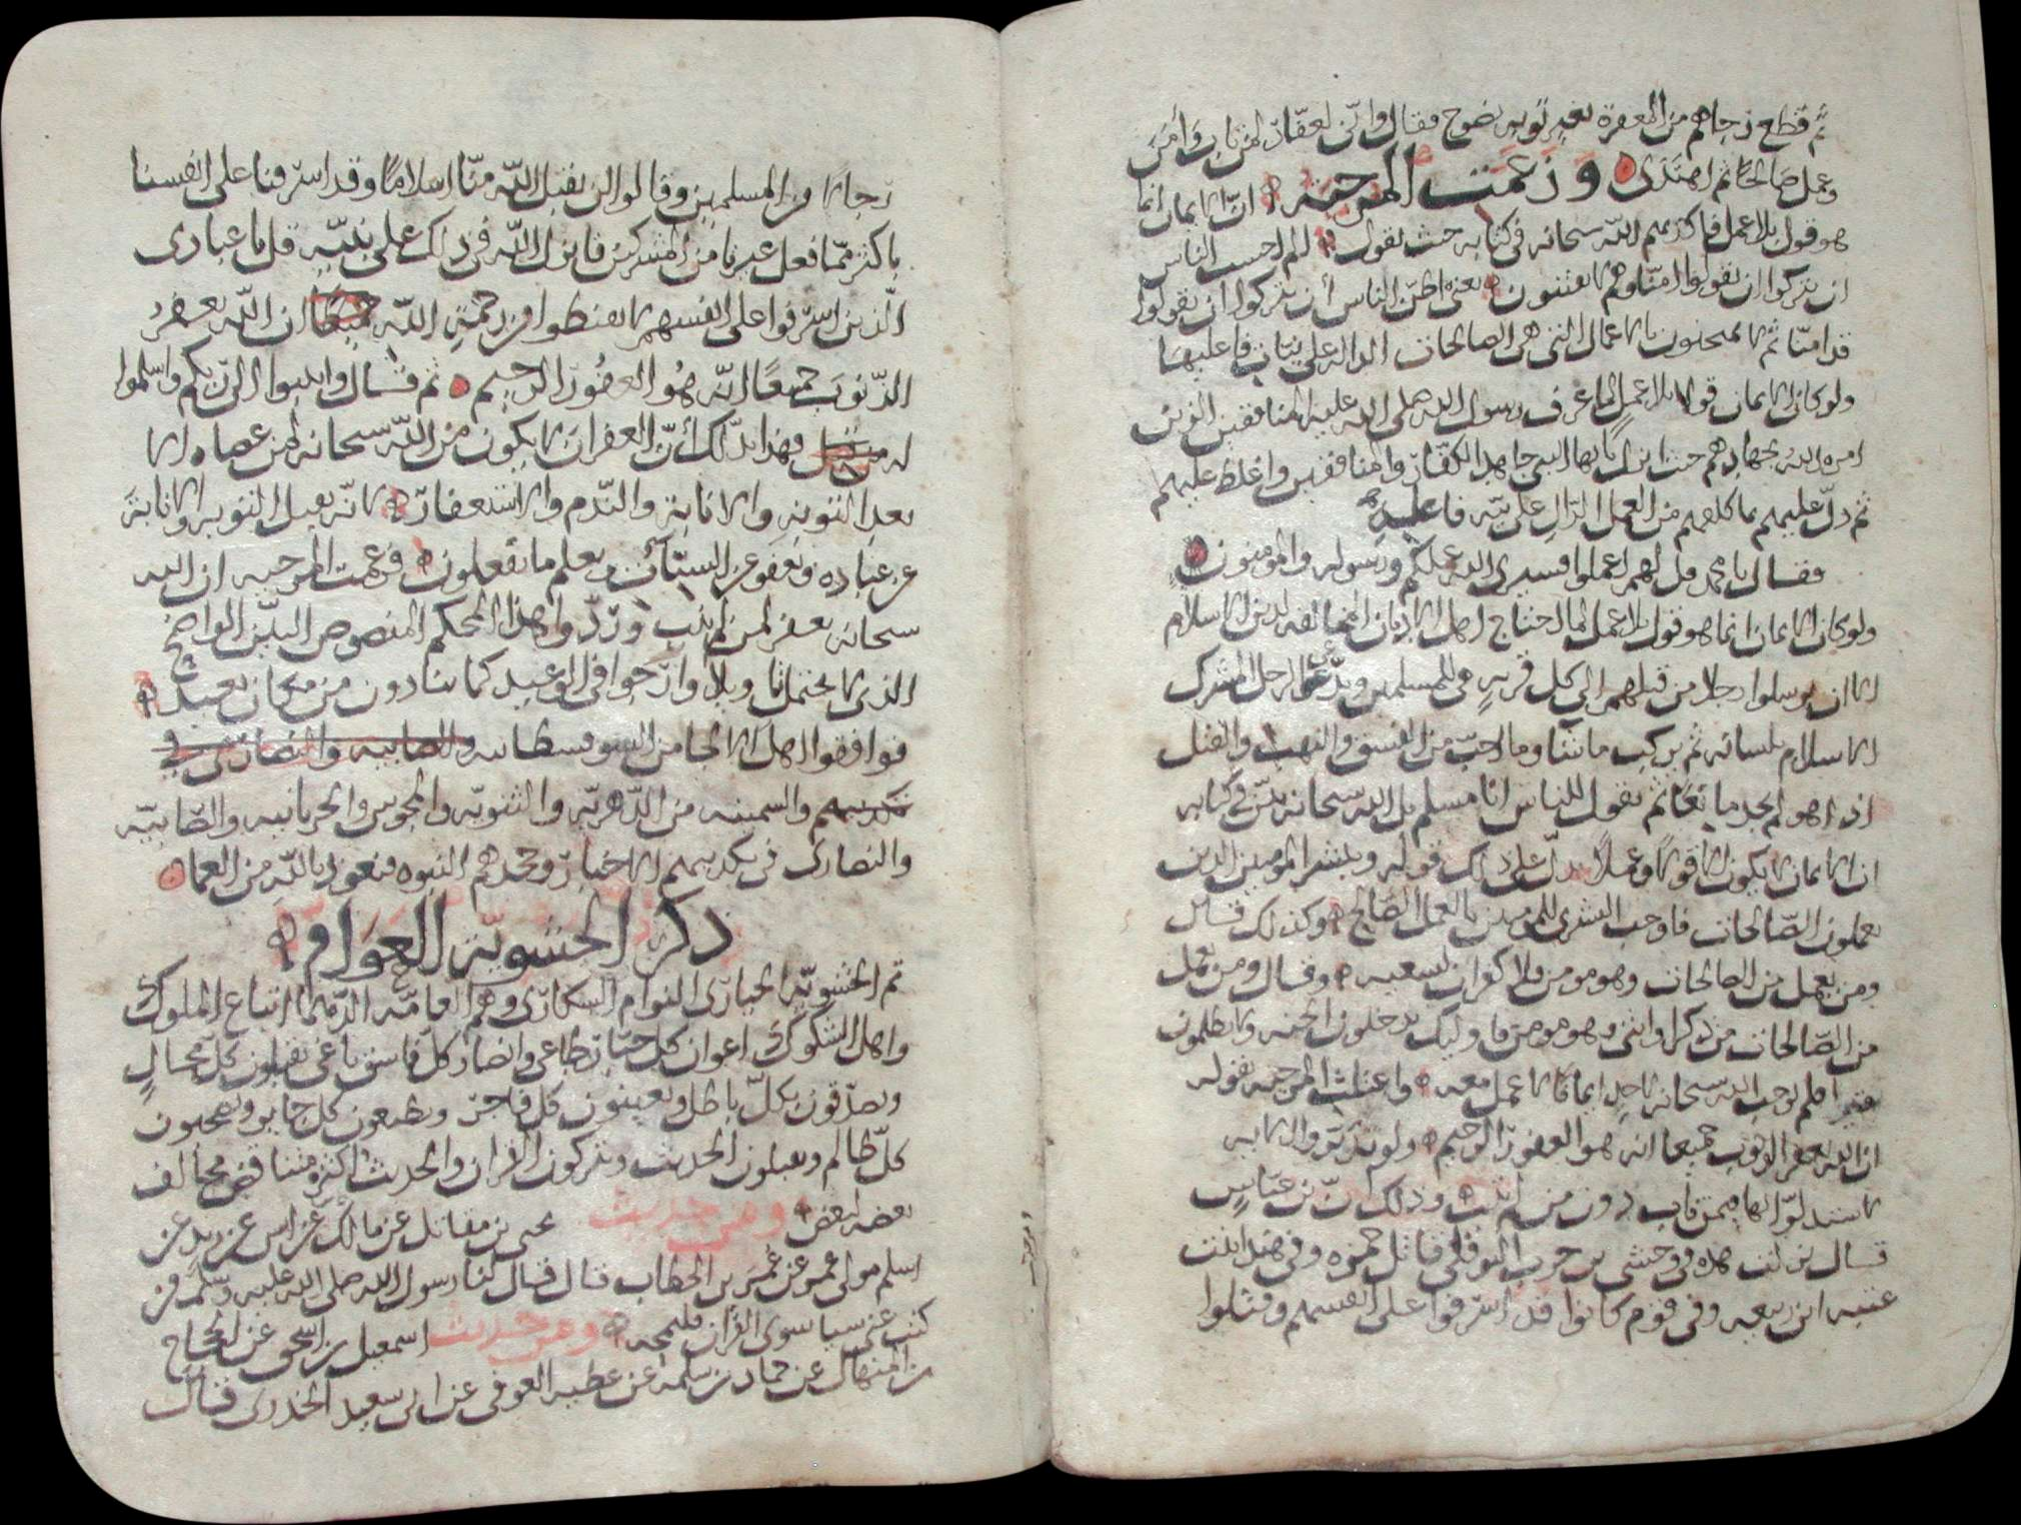 ثم قطع رجاهم من المغفرة بغير توبة نصوح فقال وانّي لغفّار لمن تاب وَآمَنَ
وعمل صَالحًا ثم اهتَدَى وزعمت المرجئة انّ الايمان انما
هو قول بلا عمل فاكذبهم الله سبحانه في كتابه حيث يقول الم احسب الناس
ان يتركوا ان يقولوا امنّا وهم لا يفتنون يعني اظنّ الناس أن يتركوا ان يقولوا
قد امنّا ثم لا يمتحنون بالاعمال التي هي الصالحات الدالة على نيات فاعليهَا
ولو كان الايمان قولا بلا عمل لما عرف رسول الله صلى الله عليه المنافقين الذين
امره الله بجهادهم حيث انزل يا ايها النبي جاهد الكفّار والمنافقين واغلظ عليهم
ثم دلّ عليهم بما كلفهم من العمل الدّال على نيّة فاعليه
فقال يا محمد قل لهم اعملوا فسيرى الله عملكم ورسوله والمومنون
ولو كان الايمان انما هو قول بلا عمل لما احتاج اهل الاديان المخالفة لدين الاسلام
الا ان يرسلوا رجلا من قبلهم الى كل قرية من المسلمين ويدّعى الرجل المشرك
الاسلام بلسانه ثم يركب ما شا وما احبّ من الفسق والنهب والقتل
اذا هو لم يجد مانعًا ثم يقول للناس انا مسلم بل الله سبحانه بيّن في كتابه
ان الايمان لا يكون الا قولًا وعملًا يدلّ على ذلك قوله ويبشر المومنين الذين
يعملون الصّالحات فاوجب البشرى للمومنين بالعمل الصّالح وكذلك قال
ومن يعمل من الصالحات وهو مومن فلا كفران لسعيه وقال ومن يعمل
من الصّالحات من ذكر او انثى وهو مومن فاوليك يدخلون الجنه ولا يظلمون
نقيرا فلم يوجب الله سبحانه لاحد ايمانًا لا عمل معه واعتلت المرجيه بقوله
ان الله يغفر الذنوب جميعا انه هو الغفور الرحيم ولو تدبّروا الايه
لاستدلّوا انها فيمن تاب دون من لم يتب وذلك انّ بن عبّاسٍ
قال نزلت هذه في وحشي بن حرب النوفلي قاتل حمزه وفي هند ابنت
عتبه ابن ربيعه وفي قوم كانوا قد اسرفوا على انفسهم وقتلوا
رجالا من المسلمين وقالوا لن يقبل اللّه منّا اسلامًا وقد اسرفنا على انفسنا
باكثر ممّا فعل غيرنا من المشركين فانزل اللّه في ذلك على نبيّه قل يا عبادى
الّذين اسرفوا على انفسهم لا تقنطوا من رحمة اللّه جميعًا ان اللّه يغفرُ
الذّنوب جميعًا انّه هُو الغفُور الرحيم ثم قال وانيبوا الى ربّكم واسلموا
له من قبل فهذا يدلّك أنّ الغفران لا يكون من اللّه سبحانه لمن عصاه الا
بعد التّوبةِ والانابة والنّدم والاستغفار لانّه يقبل التوبه والانابة
عن عباده ويعفو عن السيّآت ويعلم ما تفعلون فزعمت المرجيه ان الله
سبحانه يغفر لمن لم يتب ورَدّوا هذا المحكم المنصوص البيّن الواضح
الذي لا يحتمل تاويلا وارّجوا في الوعيد كما ينادون من مكان بعيد
فوافقوا اهل الالحاد من السوفسطائيه والصابيه والنصارى في
تكذيبهم والسمنيه من الدّهريّه والثنويّه والمجوس والحرنانيه والصّابيّه
والنصارى في تكذيبهم الاخبار وجحدهم النبوه فنعوذ باللّه من العما
ذكر الحشويّة العوام
ثم الحشويّة الحيارى النوام السكارى وهم العامّه الذّمما اتباع الملوك
واهل الشكوك اعوان كل جبّار طاغى وانصار كلّ فاسق باغى يقبلون كلّ محالٍ
ويصدّقون بكلّ باطل ويعينون كل فاجرّ ويطيعون كل جاير ويصحبون
كلّ ظالم ويقبلون الحديث ويتركون القران والحديث اكثره متناقض مخالف
بعضه لبعض ومن حديث يحيى بن مقاتل عن مالك عن انس عن زيد عن
اسلم مولى عمر عن عُمَر بن الخطاب قال قال لنا رسول الله صلى الله عليه وسلّم من
كتب عني سيا سوى القران فليمحه وعن حديث اسمعيل بن اسحق عن الحجاج
بن المنهال عن حماد بن سلمه عن عطيه العوفي عن ابى سعيد الخدرى قال